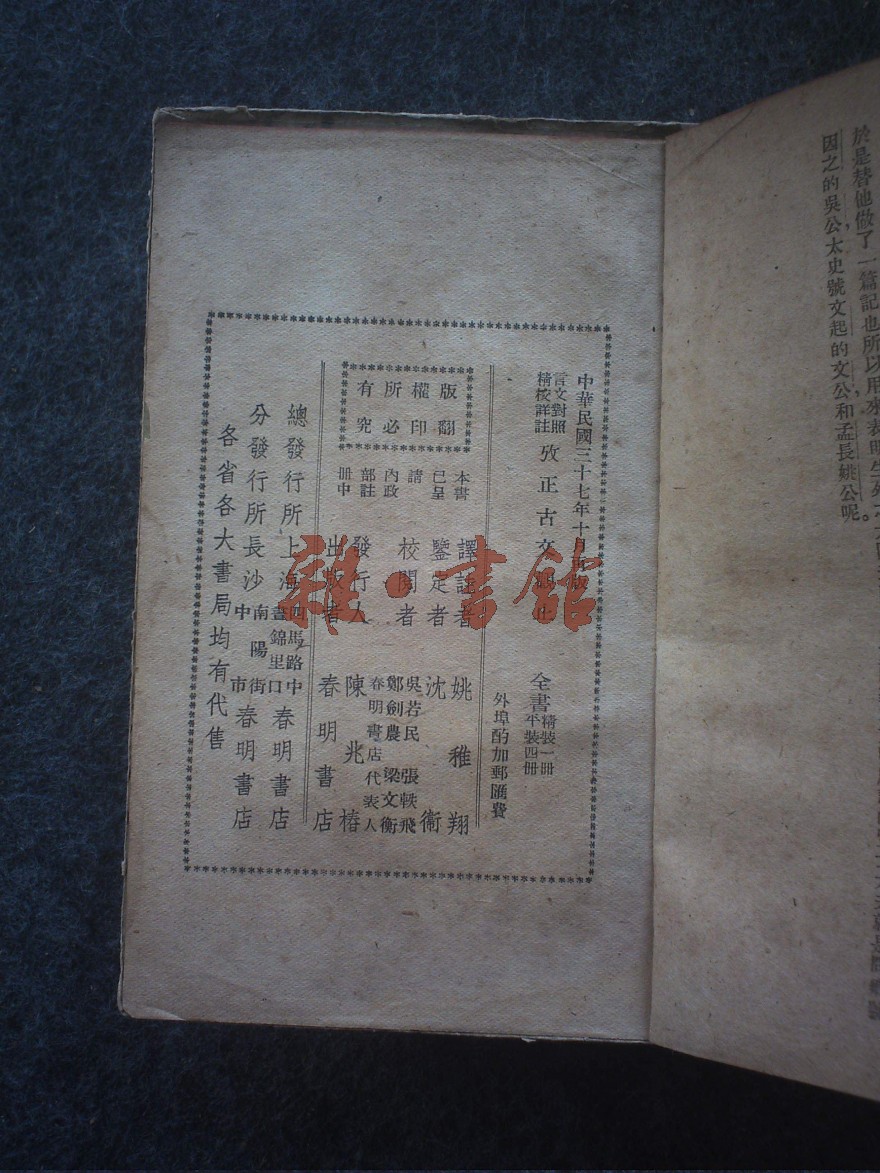 於是替他做了一篇記也所以用來
因之的吳公太史號文起的文公和孟長姚公呢。
中華民國三十七年十月再版
言文對照
精校詳註
攷正古文觀止
全書
精裝一冊
平裝四冊
外埠酌加郵匯費
版權所有
翻印必究
本書
已呈
請
內政
部註
冊中
譯註者 姚稚翔
鑒定者 沈衞
校閱者 吳若民 張軼飛
鄭劍農 梁文衡
發行人 春明書店代表人 陳兆椿
出版者 春明書店
總發行所 上海四馬路中晝錦里口 春明書店
分發行所 長沙中南陽街市 春明書店
各省各大書局均有代售
雜·書館